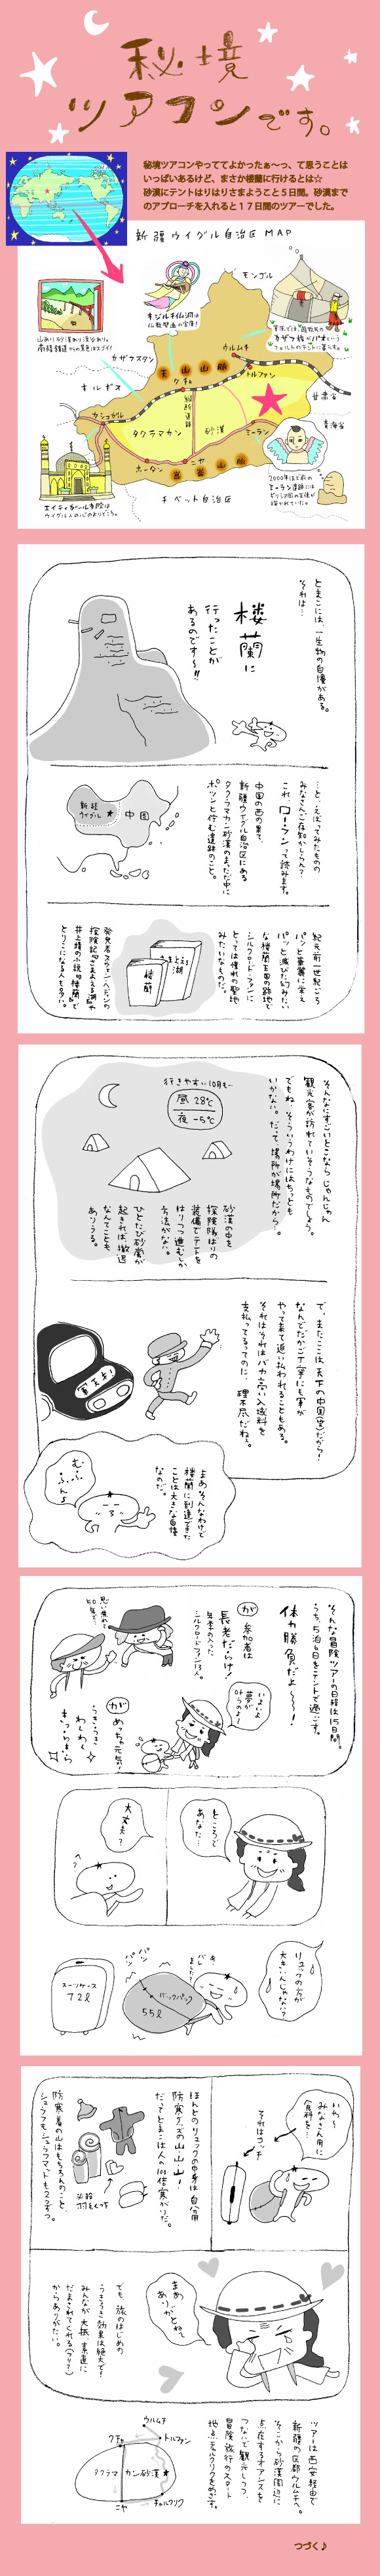 秘境
ツアコンです。
秘境ツアコンやっててよかったぁ〜っ、て思うことは
いっぱいあるけど、まさか楼蘭に行けるとは☆
砂漠にテントはりはりさまようこと５日間。砂漠まで
のアプローチを入れると１７日間のツアーでした。
新疆ウイグル自治区 MAP
モンゴル
キジル千仏洞は
仏教壁画の宝庫!
山あり砂漠あり渓谷あり。
カザフ族のパオという
フェルトのテントに暮らす。
カザフスタン
ウルムチ
トルファン
天山山脈
クチャ
キルギス
甘粛省
カシュガル
タクラマカン
砂漠
ミーラン
青海省
ホータン
ニヤ
崑崙山脈
チベット自治区
エイティガール寺院は
ウイグル人の心のよりどころ。
とまこには、一生物の自慢がある。
それは…
楼蘭に
行ったことが
あるのです〜!!
…と、いえばってみたものの
みなさんご存知かしらん?
これ、ローランって読みます。
中国の西の果て、
新疆ウイグル自治区にある
タクラマカン砂漠のまっただ中に
ポツンと佇む遺跡のこと。
新疆
ウイグル
中国
紀元前一世紀ごろ
パッと華麗に栄え
パッと滅びた幻みたい
な楼蘭王国の跡地で
シルクロードファンに
とっては憧れの聖地
みたいなものだ。
さまよえる
湖
楼蘭
発見者スウェン・ヘディンの
探検記『さまよえる湖』や
井上靖の小説『楼蘭』で
とりこになる人も多い。
そんなにすごいとこなら じゃんじゃん
観光客が訪れていそうなものでしょう。
でもね、そういうわけにはちっとも
いかない。だって、場所が場所だから…。
行きやすい10月も…
昼 28℃
夜 -5℃
砂漠の中を
探検隊ばりの
装備でテントを
はりつつ進むしか
方法がない。
ひとたび砂嵐が
起きれば、撤退
なんてことも
ありうる。
で、またここは天下の中国(笑)だから!
なんでだかご丁寧にも軍が
やって来て追い払われることもある。
それはそれはバカ高い入域料を
支払ってるってのに…。理不尽だわぁ。
まあ、そんなわけで
楼蘭に到達できた
ことは大きな自慢
なのだ。
むふふんよ
そんな冒険ツアーの日程は15日間。
うち、5泊6日をテントで過ごす。
体力勝負だよ〜〜!
が
参加者は
長老だらけ!
年季の入った
シルクロードファン13人。
思い焦れて
50年で…
いよいよ
夢が
叶うのね
が
めっちゃ元気!
うきうき
わくわく
きらきら
ところで
あなた…
大丈夫?
リュックの方が
大きいんじゃない?
スーツケース
72ℓ
バックパック
55ℓ
パツ
パツ
いや〜
みなさん用に
食料を…
それはコッチ
ほとんどのリュックの中身は自分用
防寒グッズの山山山!
だってとまこは人の100倍寒がりだ。
防寒着の山はもちろんのこと、
シュラフもシュラフマットも2コずつ。
羽毛くつ下
まあっ
ありがとねぇ
でも、旅のはじめの
うきうき効果は絶大で!
みんなが大抵、素直に
だまされてくれる(フリ?)
からありがたい。
ツアーは西安経由で
新疆の区都ウルムチへ。
そこから砂漠周辺に
点在するオアシスを
つないで観光しつつ、
冒険旅行のスタート
地点チャルクリクをめざす。
ウルムチ
トルファン
クチャ
タクラマカン砂漠
ニヤ
チャルクリク
つづく♪